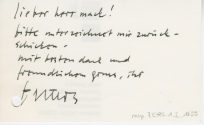 lieber herr mach!
bitte unterzeichnet mir zurück-
schicken -
mit bestem dank und
freundlichem gruss, ihr